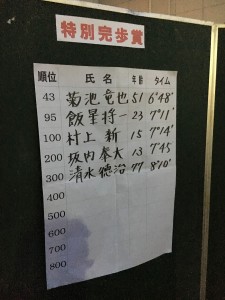 特別完歩賞
順位 氏名 年齢 タイム
43 菊池竜也 51 6°48'
95 飯星将一 23 7°11'
100 村上新 15 7°14'
200 坂内奉大 13 7°45
300 清水德治 77 8°10'
400
500
600
700
800